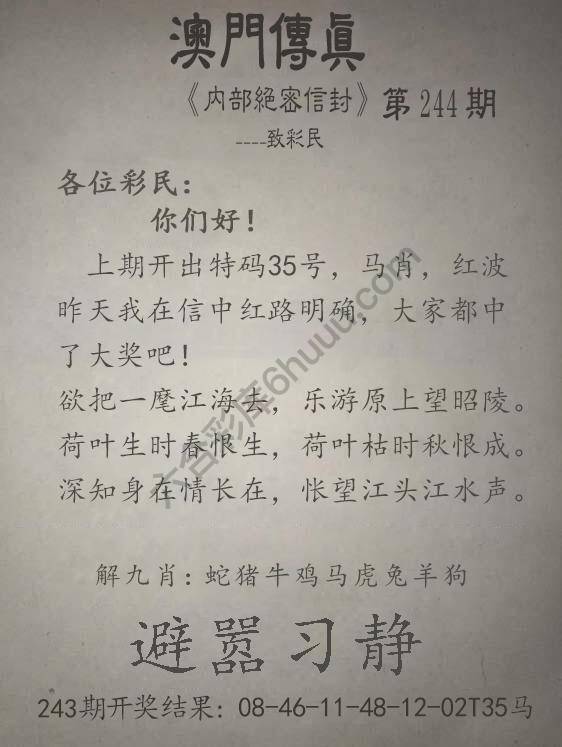 澳門傳眞
《内部絕密信封》第244期
----致彩民
各位彩民：
你们好！
上期开出特码35号，马肖，红波
昨天我在信中红路明确，大家都中
了大奖吧！
欲把一麾江海去，乐游原上望昭陵。
荷叶生时春恨生，荷叶枯时秋恨成。
深知身在情长在，怅望江头江水声。
解九肖：蛇猪牛鸡马虎兔羊狗
避嚣习静
243期开奖结果：08-46-11-48-12-02T35马
六合彩库6huuu.com